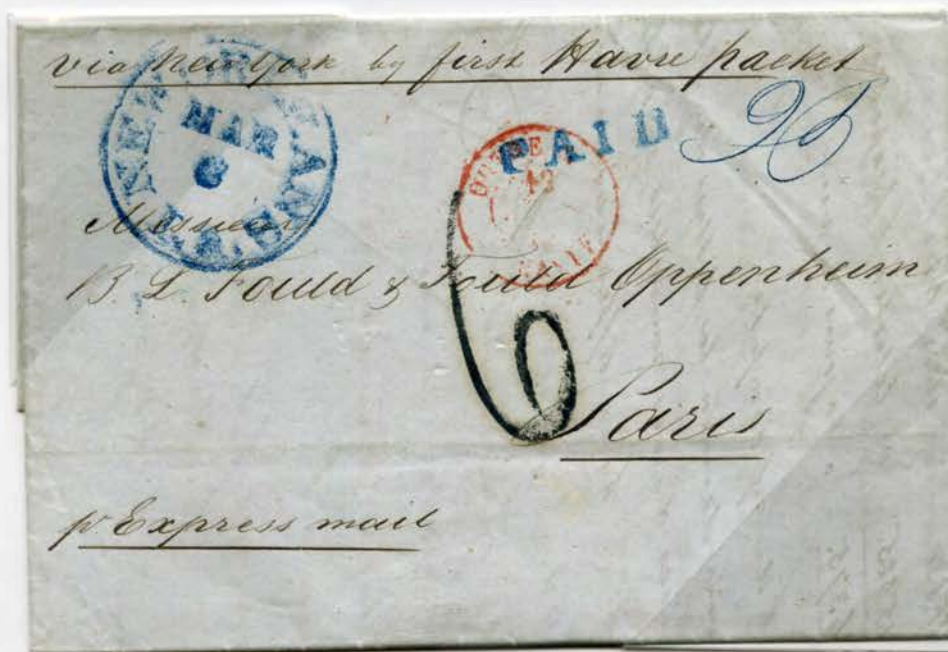 via New York by first Havre packet
NEW ORLEANS
MAR
6
PAID
26
OUTRE
LE HAVRE
Messieurs
B. L. Fould & Fould Oppenheim
6
Paris
p Express mail